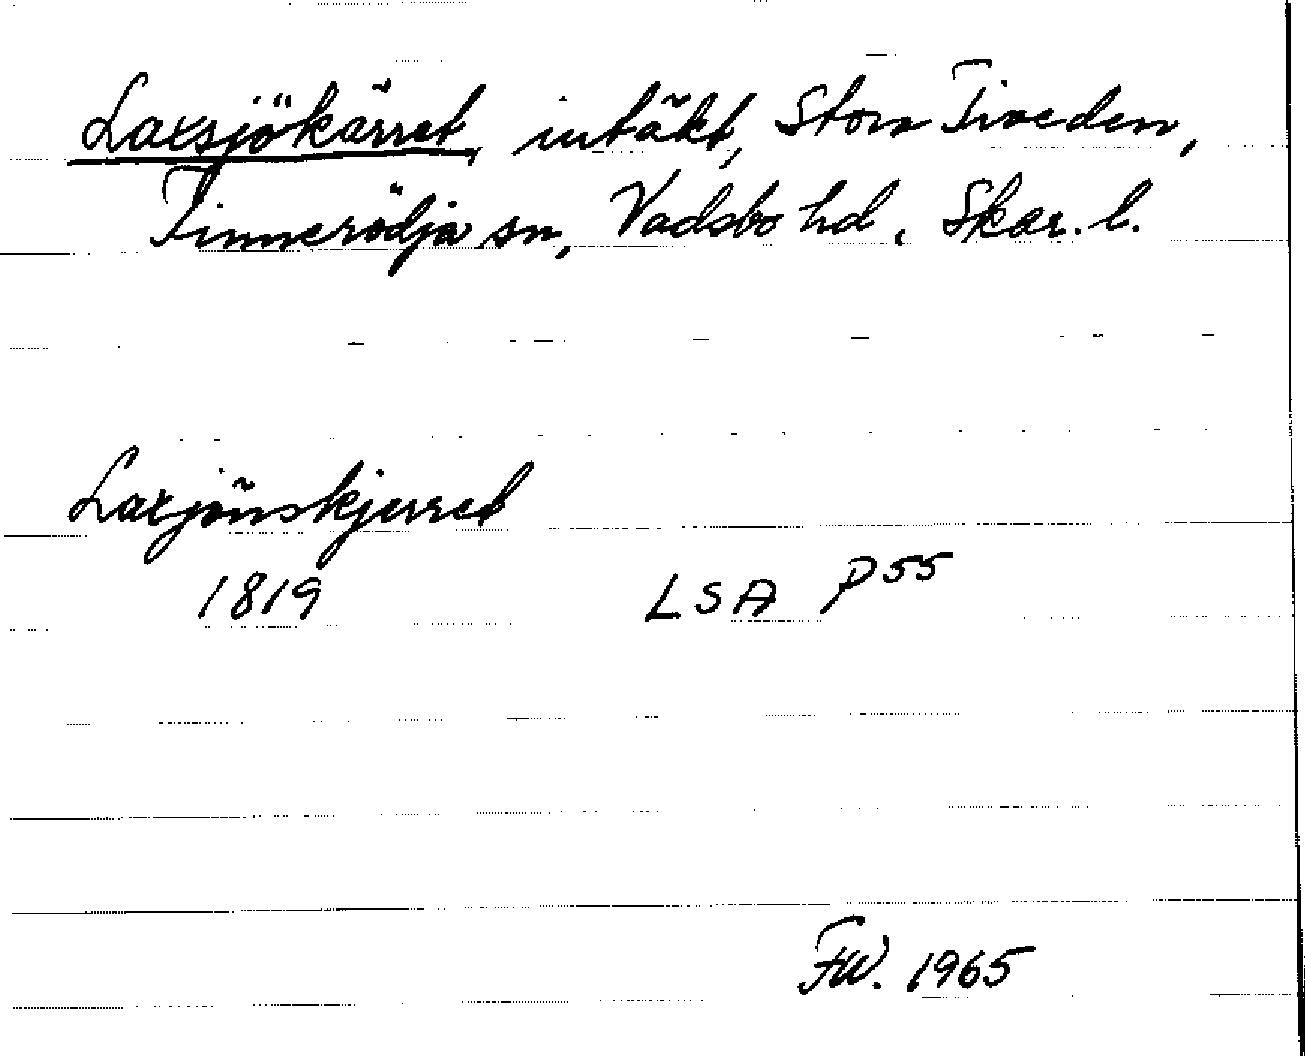 Laxsjökärret, intäkt, Stora Tiveden,
Finnerödja sn, Vadsbo hd, Skar. l.
Laxjönskjerret
1819 LSA P55
FW. 1965